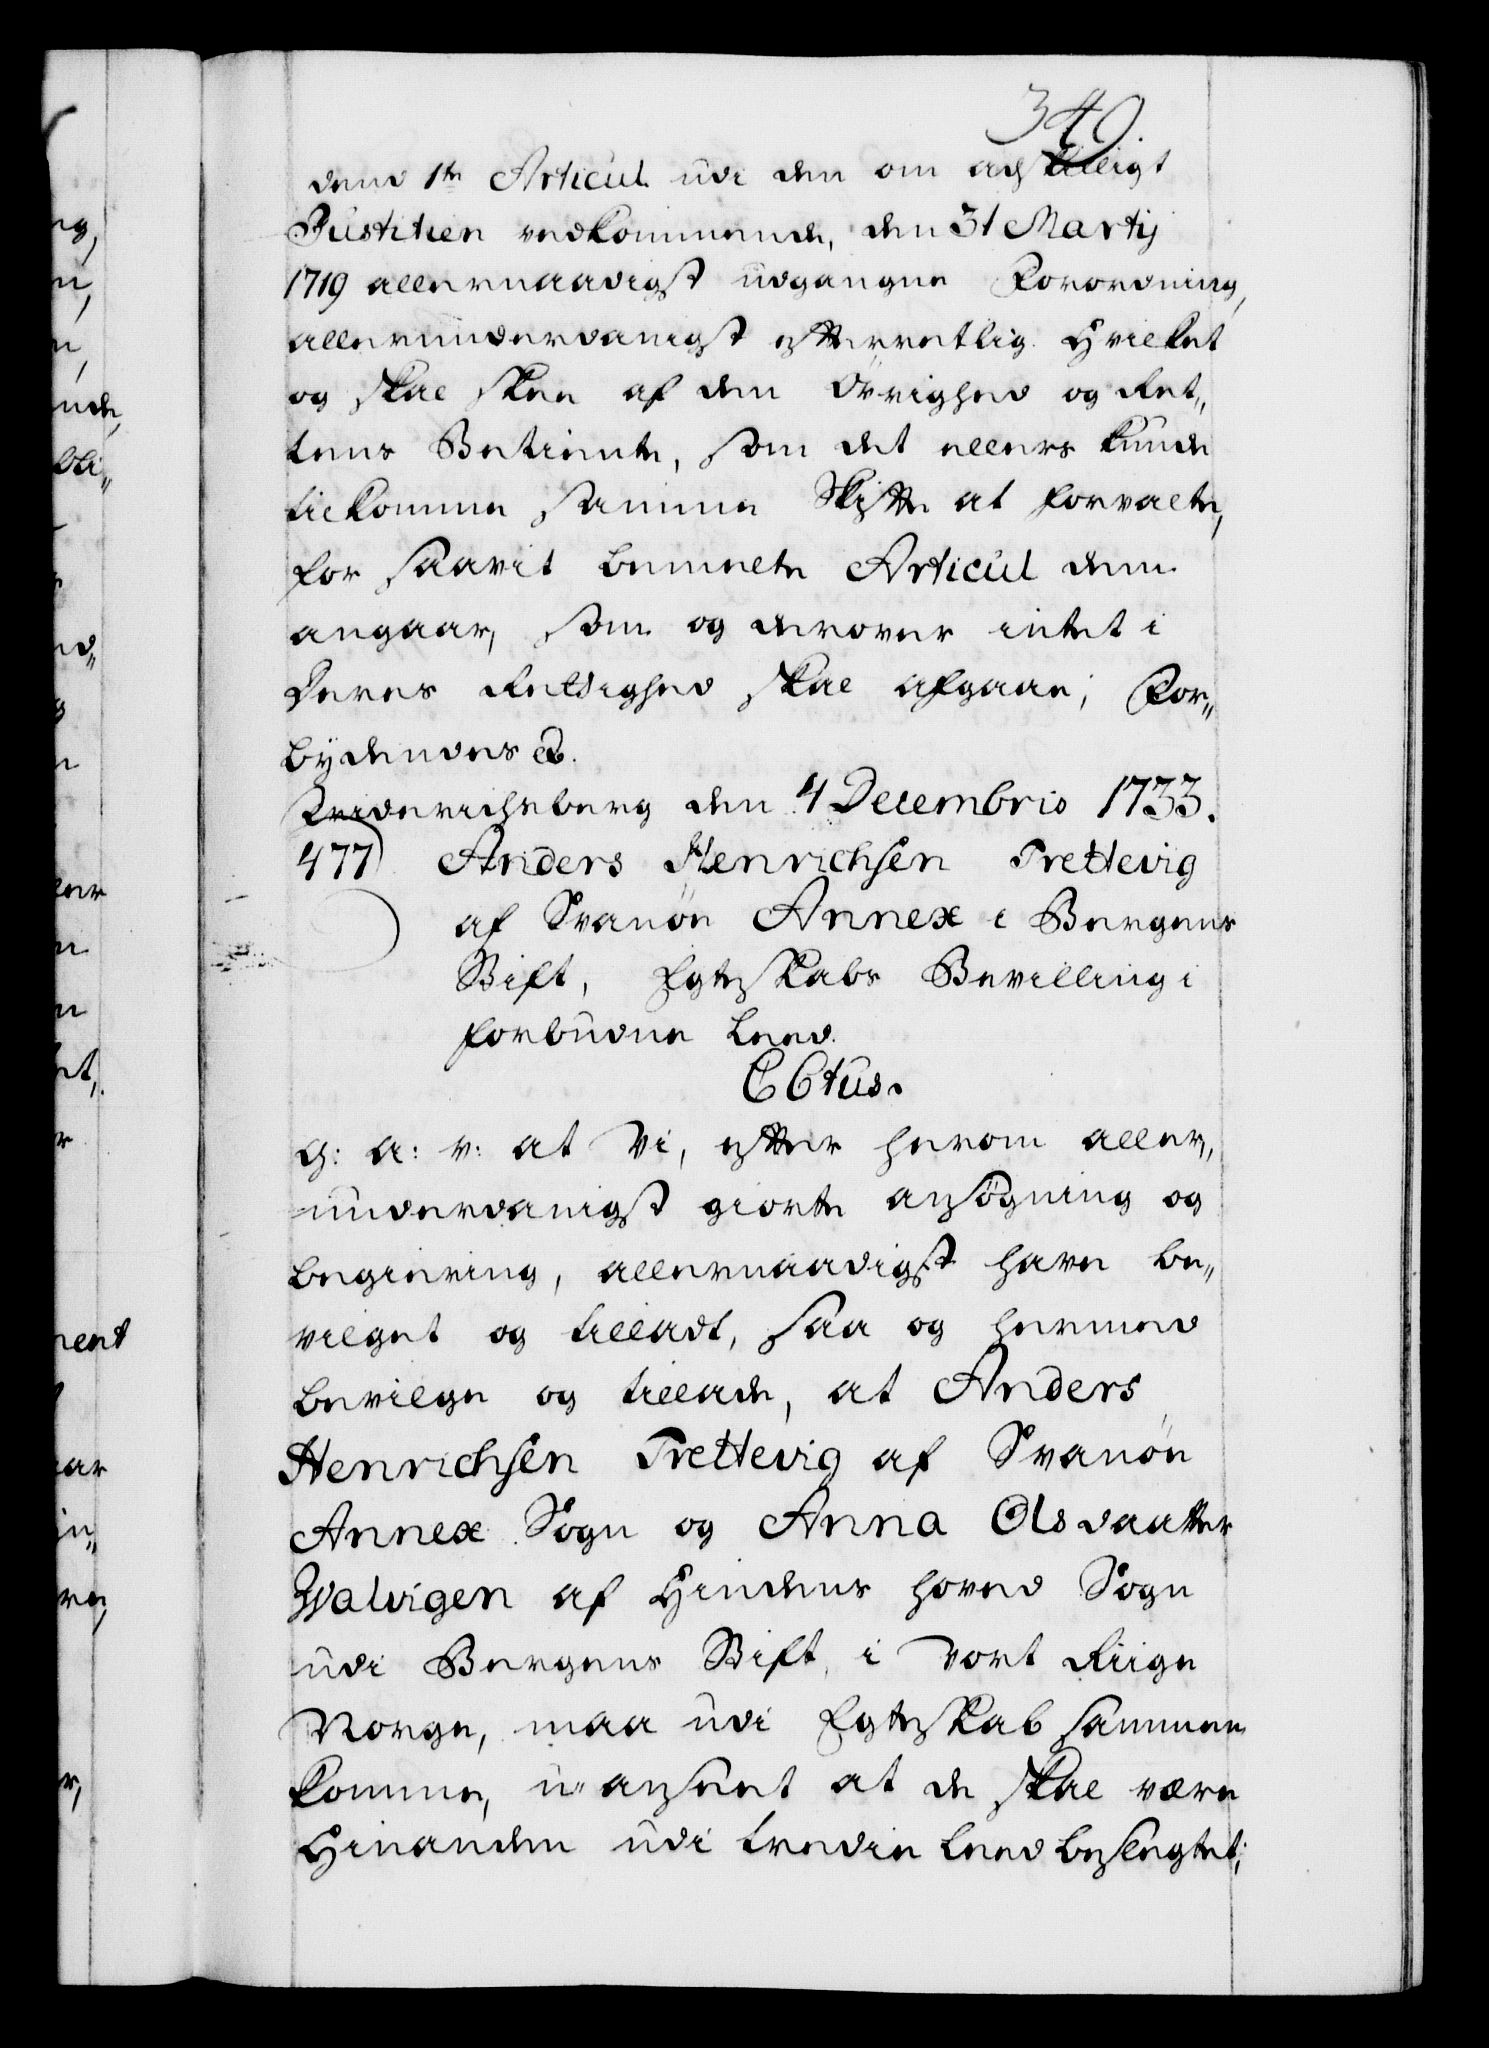 349.
dend 1te Articul udi den om adskilligt
Justitien vedkommende, den 31 Martij
1719 allernaadigst udgangne Forordning,
allerunderdanigst efterretlig. Hvilket
og skal skee af den Övrighed og Ret„
tens Betiente, som det ellers kunde
tilkomme samme Skifte at forvalte,
for saavit bemelte Articul dem
angaar, som og derover intet i
Deres Rettighed skal afgaae; For„
bydendes &.
Friderichsberg den 4 Decembris 1733.
477) Anders Henrichsen Trettevig
af Svanöe Annex i Bergens
Stift, Egteskabs Bevilling i
forbudne Leed.
C6tus.
G: A: V: at Vi, efter herom aller„
underdanigst giorte ansøgning og
begiering, allernaadigst have be„
vilget og tilladt, saa og hermed
bevilge og tillade, at Anders
Henrichsen Trettevig af Svanöe
Annex Sogn og Anna Olsdaatter
Walvigen af Hindens hoved Sogn
udi Bergens Stift, i Vort Riige
Norge, maa udi Egteskab sammen
komme, u-anseet at de skal være
Hinanden udi tredie Leed beslegtet;